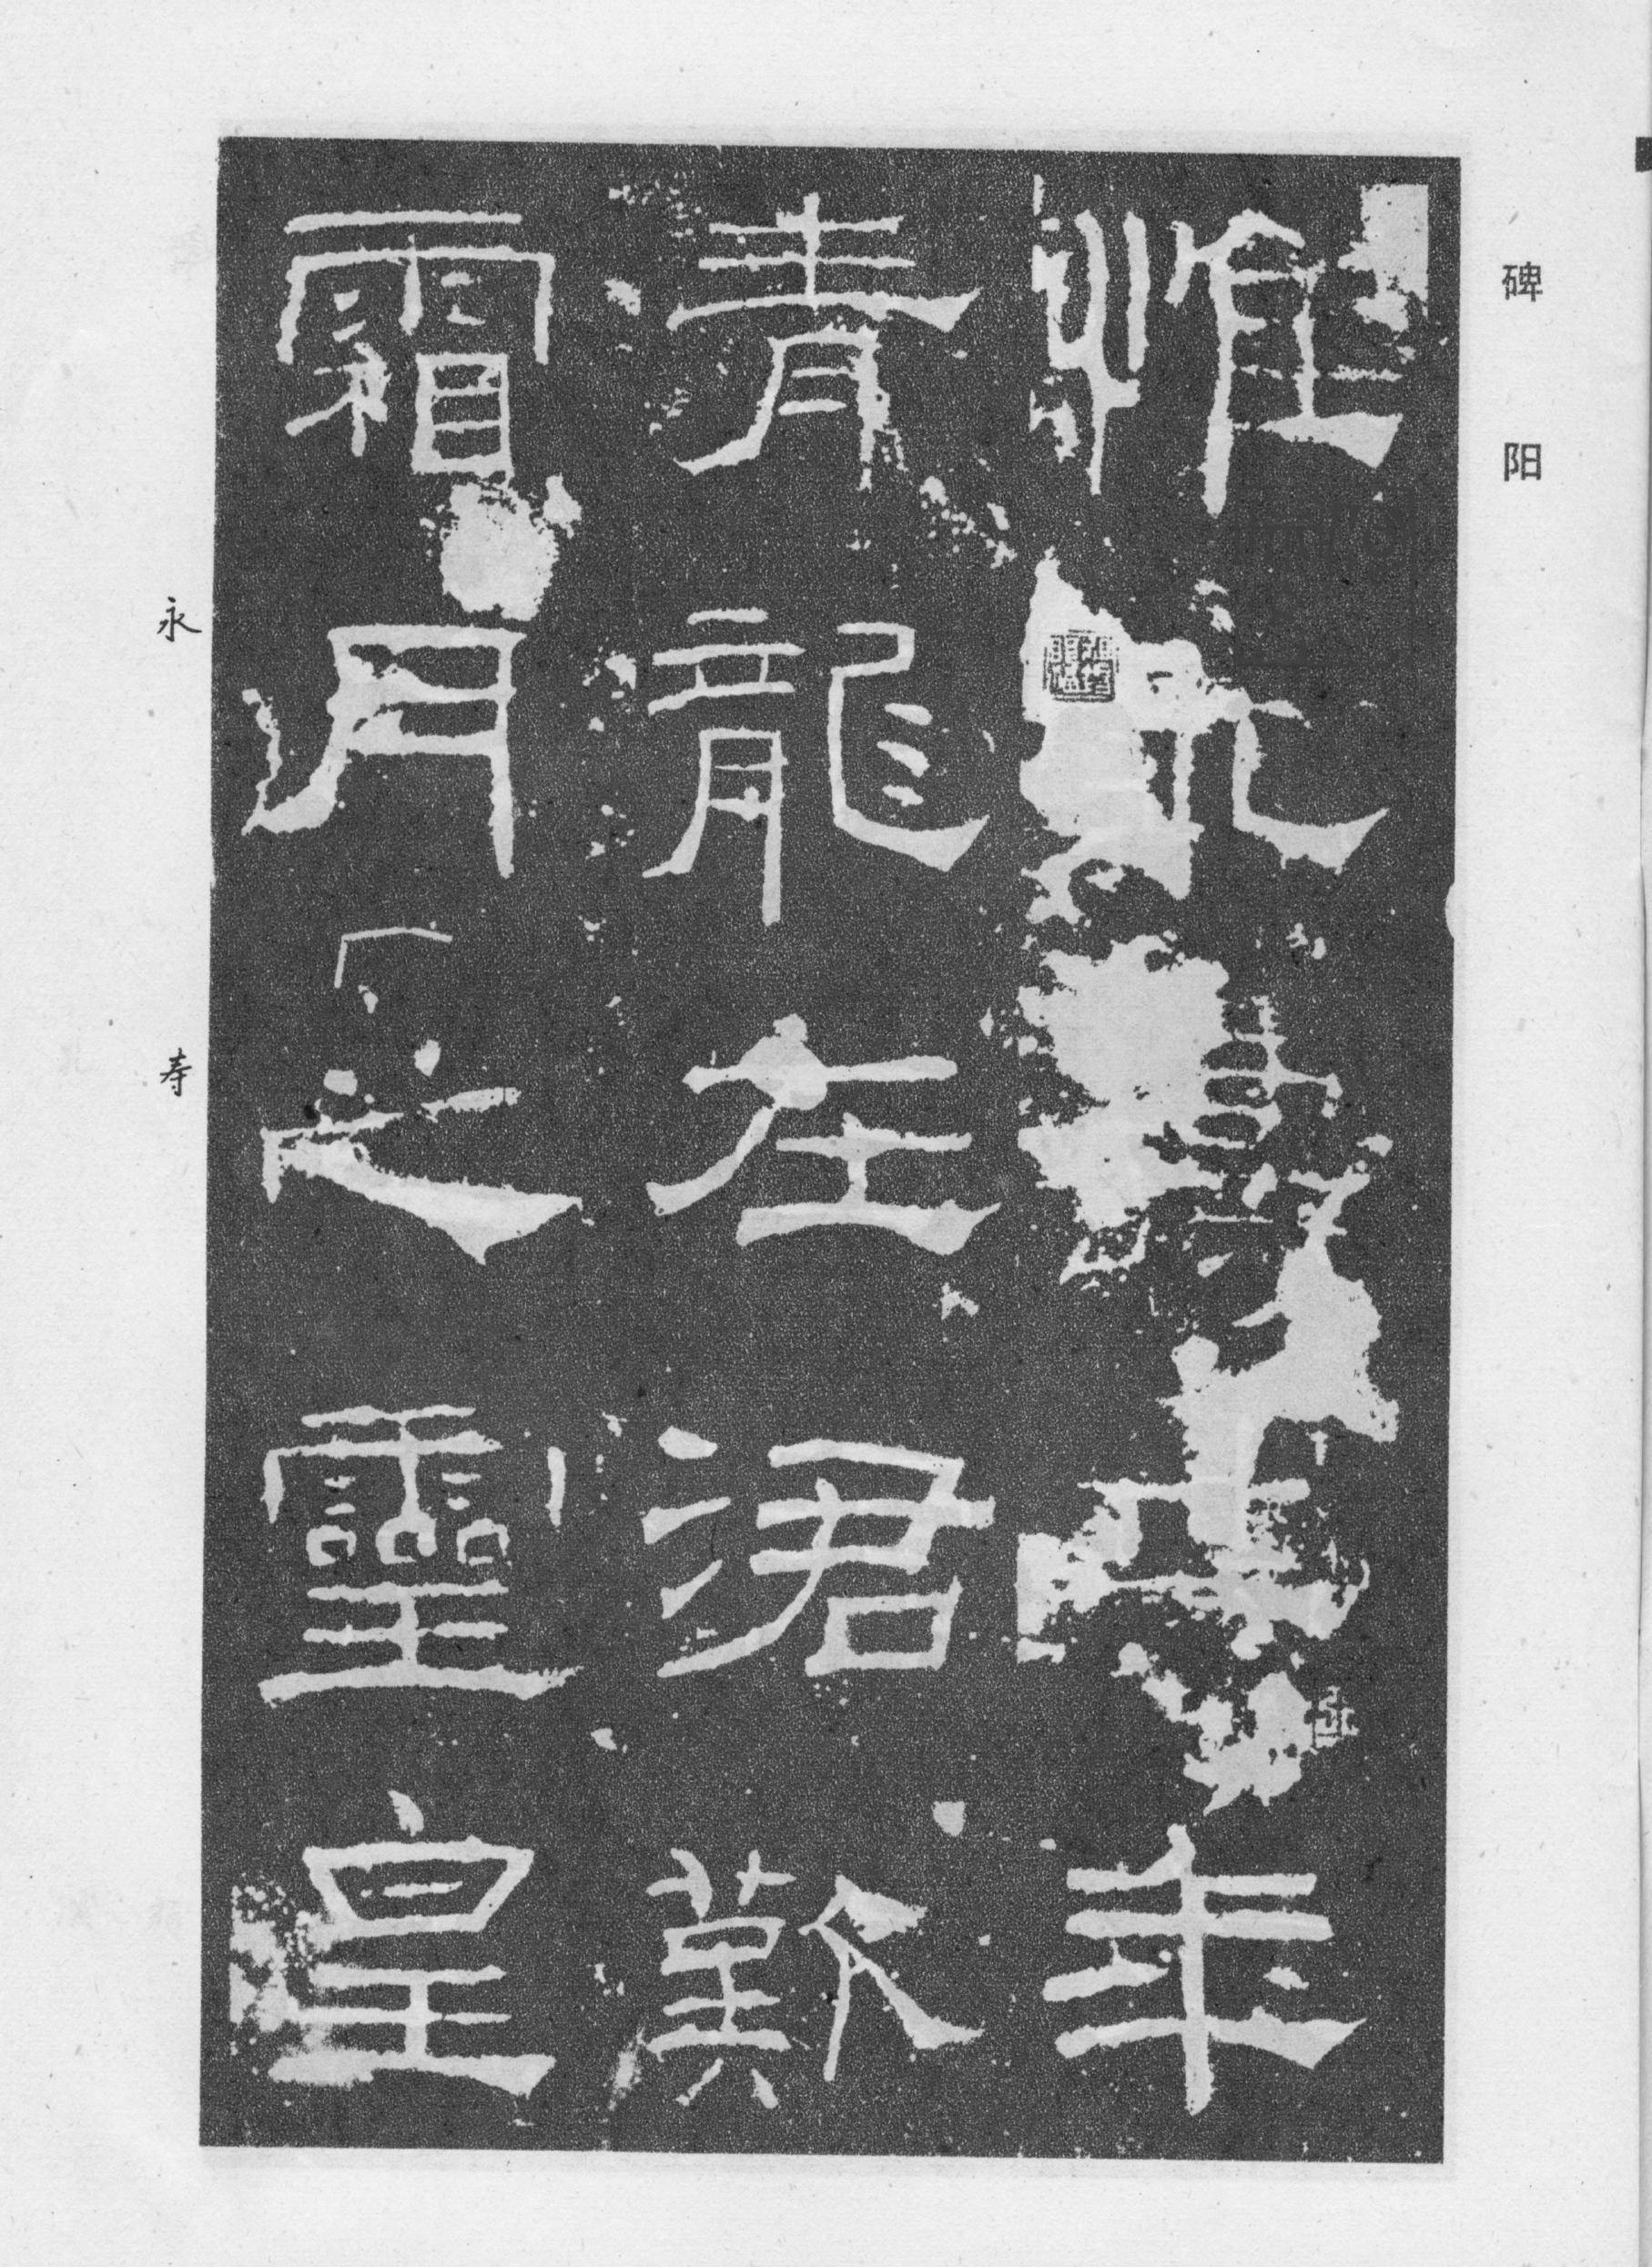 碑阳
惟永壽二年
青龍在涒歎
霜月之靈皇
永寿